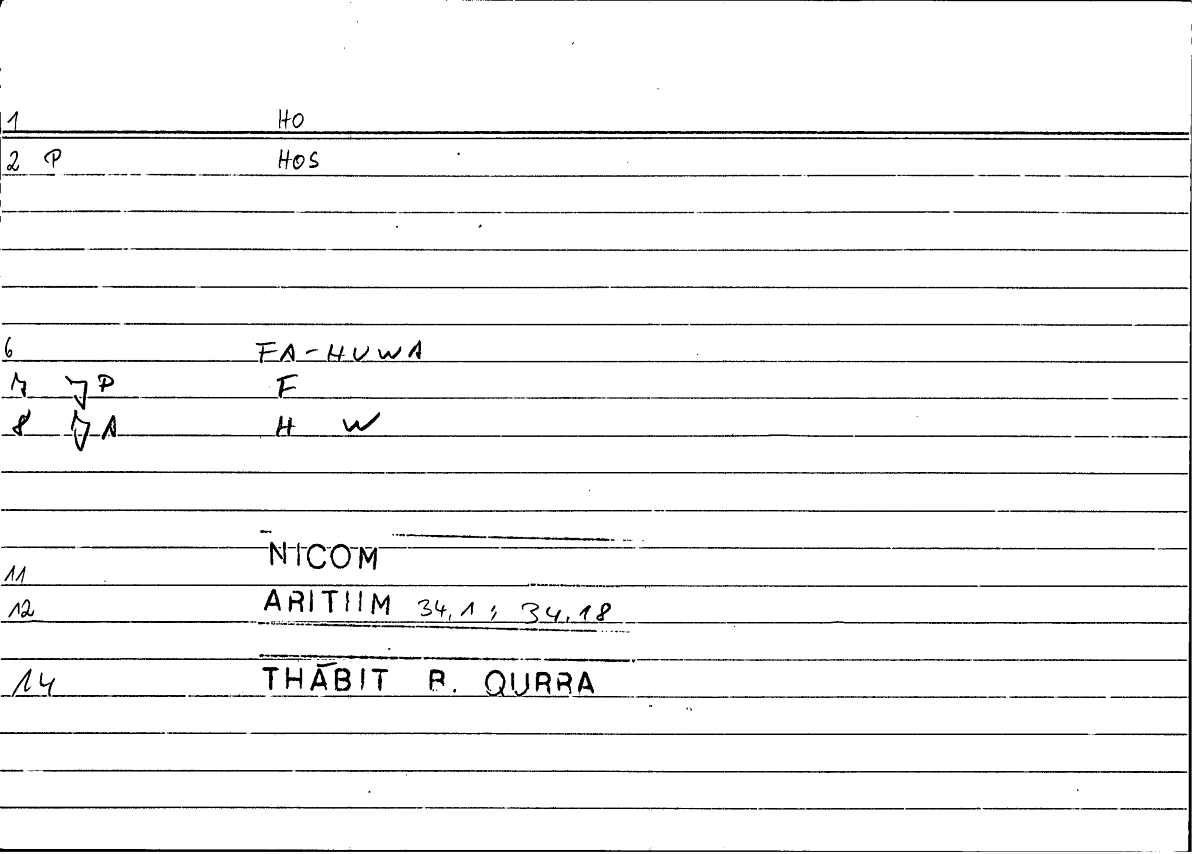 1 HO
2 P HOS
6 FA-HUWA
7 P F
8 A H W
NICOM
11
12 ARITIIM 34,1; 34.18
14 THĀBIT B. QURRA